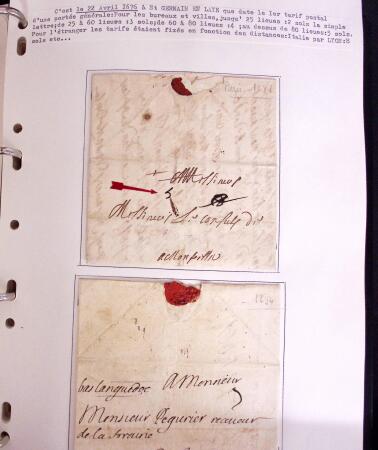 C'est le 22 Avril 1676 à St GERMAIN EN LAYE que date le 1er tarif postal
d'une portée générale:Pour les bureaux et villes,jusqu' 25 lieues :2 sols la simple
lettre;de 25 à 60 lieues :3 sols;de 60 à 80 lieues :4 ;au dessus de 80 lieues:5 sols.
Pour l'étranger les tarifs étaient fixés en fonction des distances:Italie par LYON:8
sols etc...
Messieurs
Messieurs Les Consuls De
bas languedoc A Monsieur
Monsieur Pequrier receveur
de la